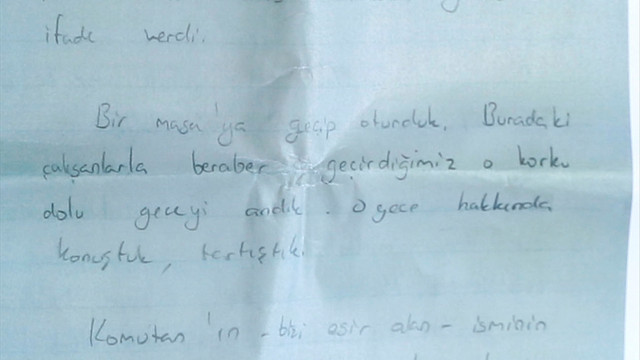 ifade verdi.
Bir masa'ya geçip oturduk. Buradaki
çalışanlarla beraber geçirdiğimiz o korku
dolu geceyi andık. O gece hakkında
konuştuk, tartıştık.
Komutan'ın - bizi esir alan - isminin